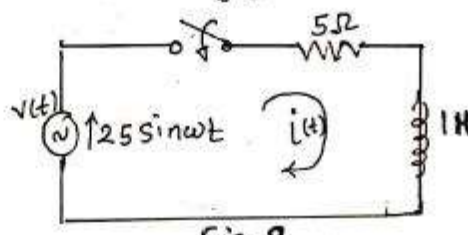 5Ω
v(t)
~
↑25 sinωt
i(t)
1H